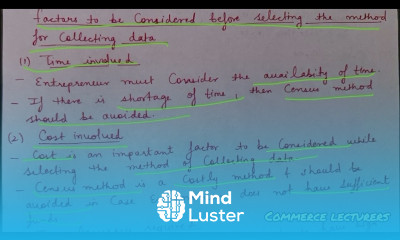 factors to be Considered before selecting the method
for Collecting data
(1) Time involved
- Entrepreneur must Consider the availabity of time.
- If there is shortage of time, then Census method
should be avoided.
(2) Cost involved
- Cost is an important factor to be Considered while
selecting the method of Collecting data
- Census method is a Costly method & should be
avoided in Case does not have sufficient
Mind
Luster
COMMERCE LECTURERS